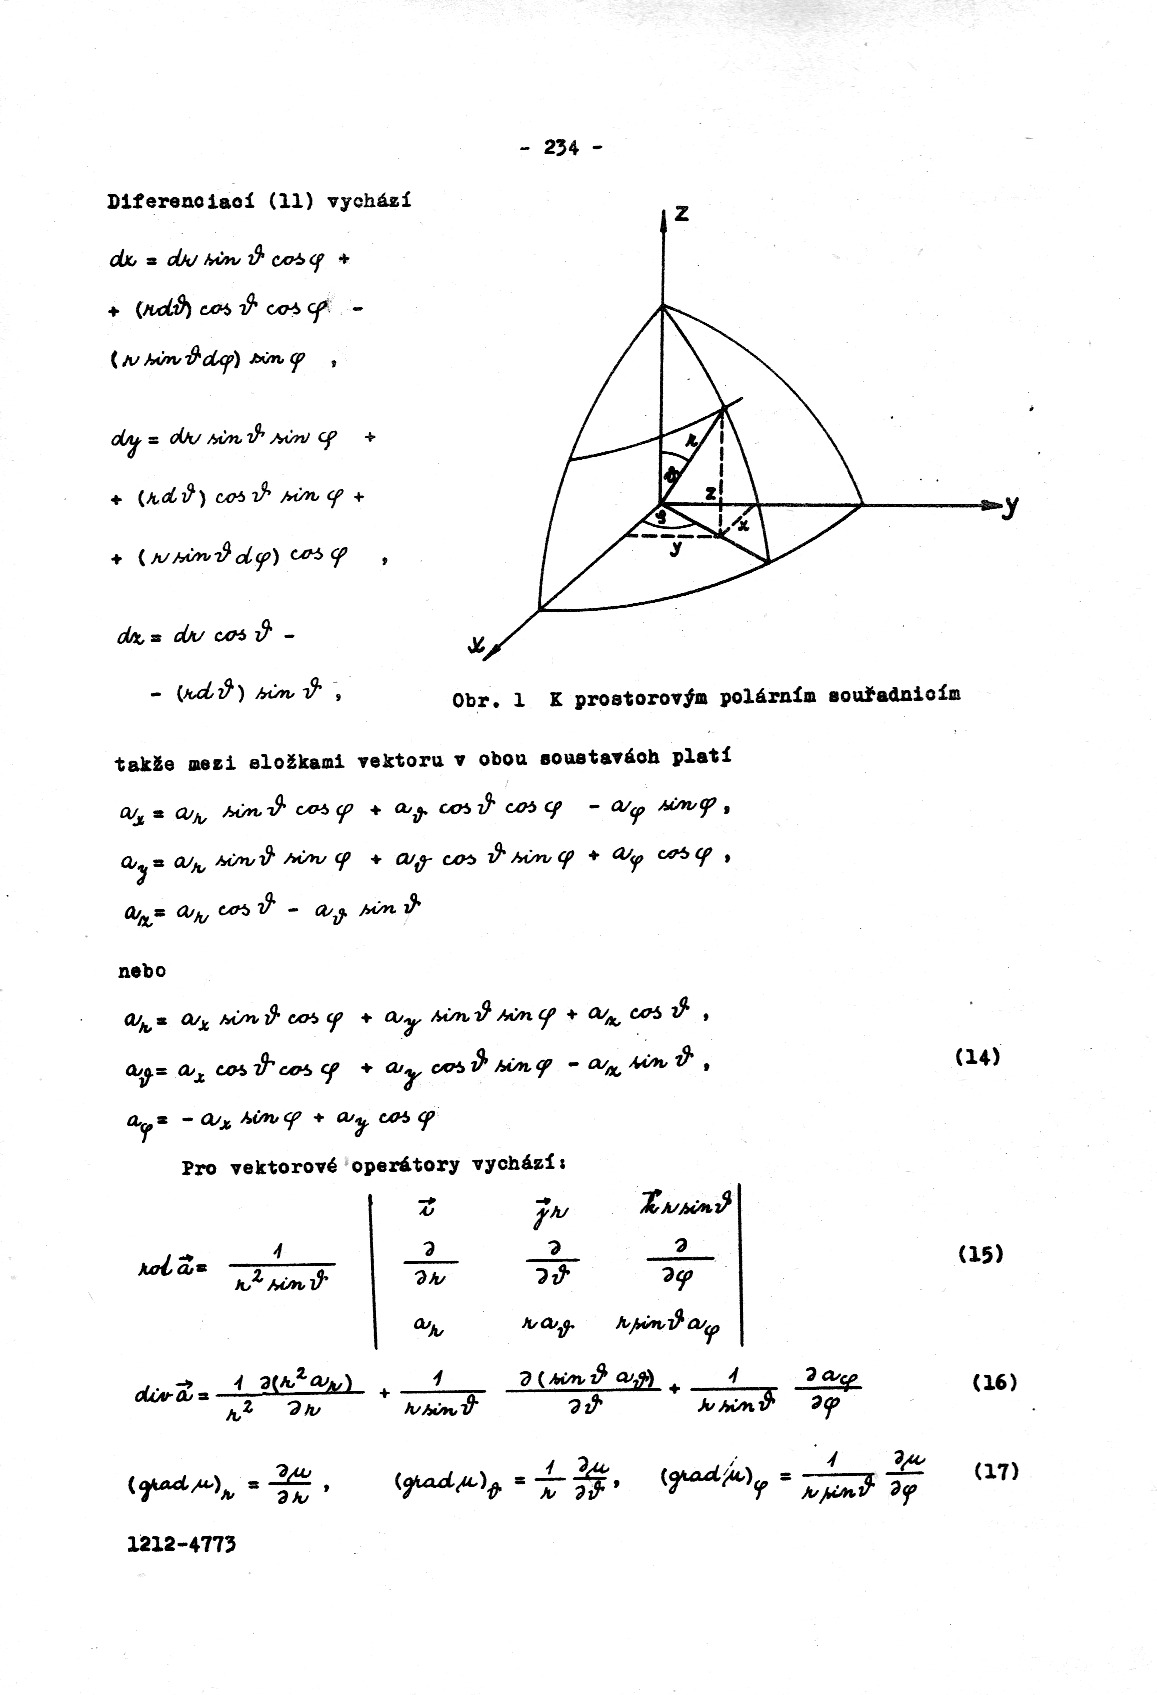 - 234 -
Diferenciací (11) vychází
dx = dr sin ϑ cos φ +
+ (rdϑ) cos ϑ cos φ -
(r sin ϑ dφ) sin φ ,
dy = dr sin ϑ sin φ +
+ (rdϑ) cos ϑ sin φ +
+ (r sin ϑ dφ) cos φ ,
dz = dr cos ϑ -
- (rdϑ) sin ϑ ,
z
r
ϑ
z
φ
x
y
y
x
Obr. 1 K prostorovým polárním souřadnicím
takže mezi složkami vektoru v obou soustavách platí
a_x = a_r sin ϑ cos φ + a_ϑ cos ϑ cos φ - a_φ sin φ ,
a_y = a_r sin ϑ sin φ + a_ϑ cos ϑ sin φ + a_φ cos φ ,
a_z = a_r cos ϑ - a_ϑ sin ϑ
nebo
a_r = a_x sin ϑ cos φ + a_y sin ϑ sin φ + a_z cos ϑ ,
a_ϑ = a_x cos ϑ cos φ + a_y cos ϑ sin φ - a_z sin ϑ , (14)
a_φ = - a_x sin φ + a_y cos φ
Pro vektorové operátory vychází:
rot a⃗ = 1/(r² sin ϑ) | i⃗ j⃗r k⃗ r sin ϑ |
| ∂/∂r ∂/∂ϑ ∂/∂φ | (15)
| a_r r a_ϑ r sin ϑ a_φ |
div a⃗ = 1/r² ∂(r² a_r)/∂r + 1/(r sin ϑ) ∂(sin ϑ a_ϑ)/∂ϑ + 1/(r sin ϑ) ∂a_φ/∂φ (16)
(grad u)_r = ∂u/∂r , (grad u)_ϑ = 1/r ∂u/∂ϑ , (grad u)_φ = 1/(r sin ϑ) ∂u/∂φ (17)
1212-4773